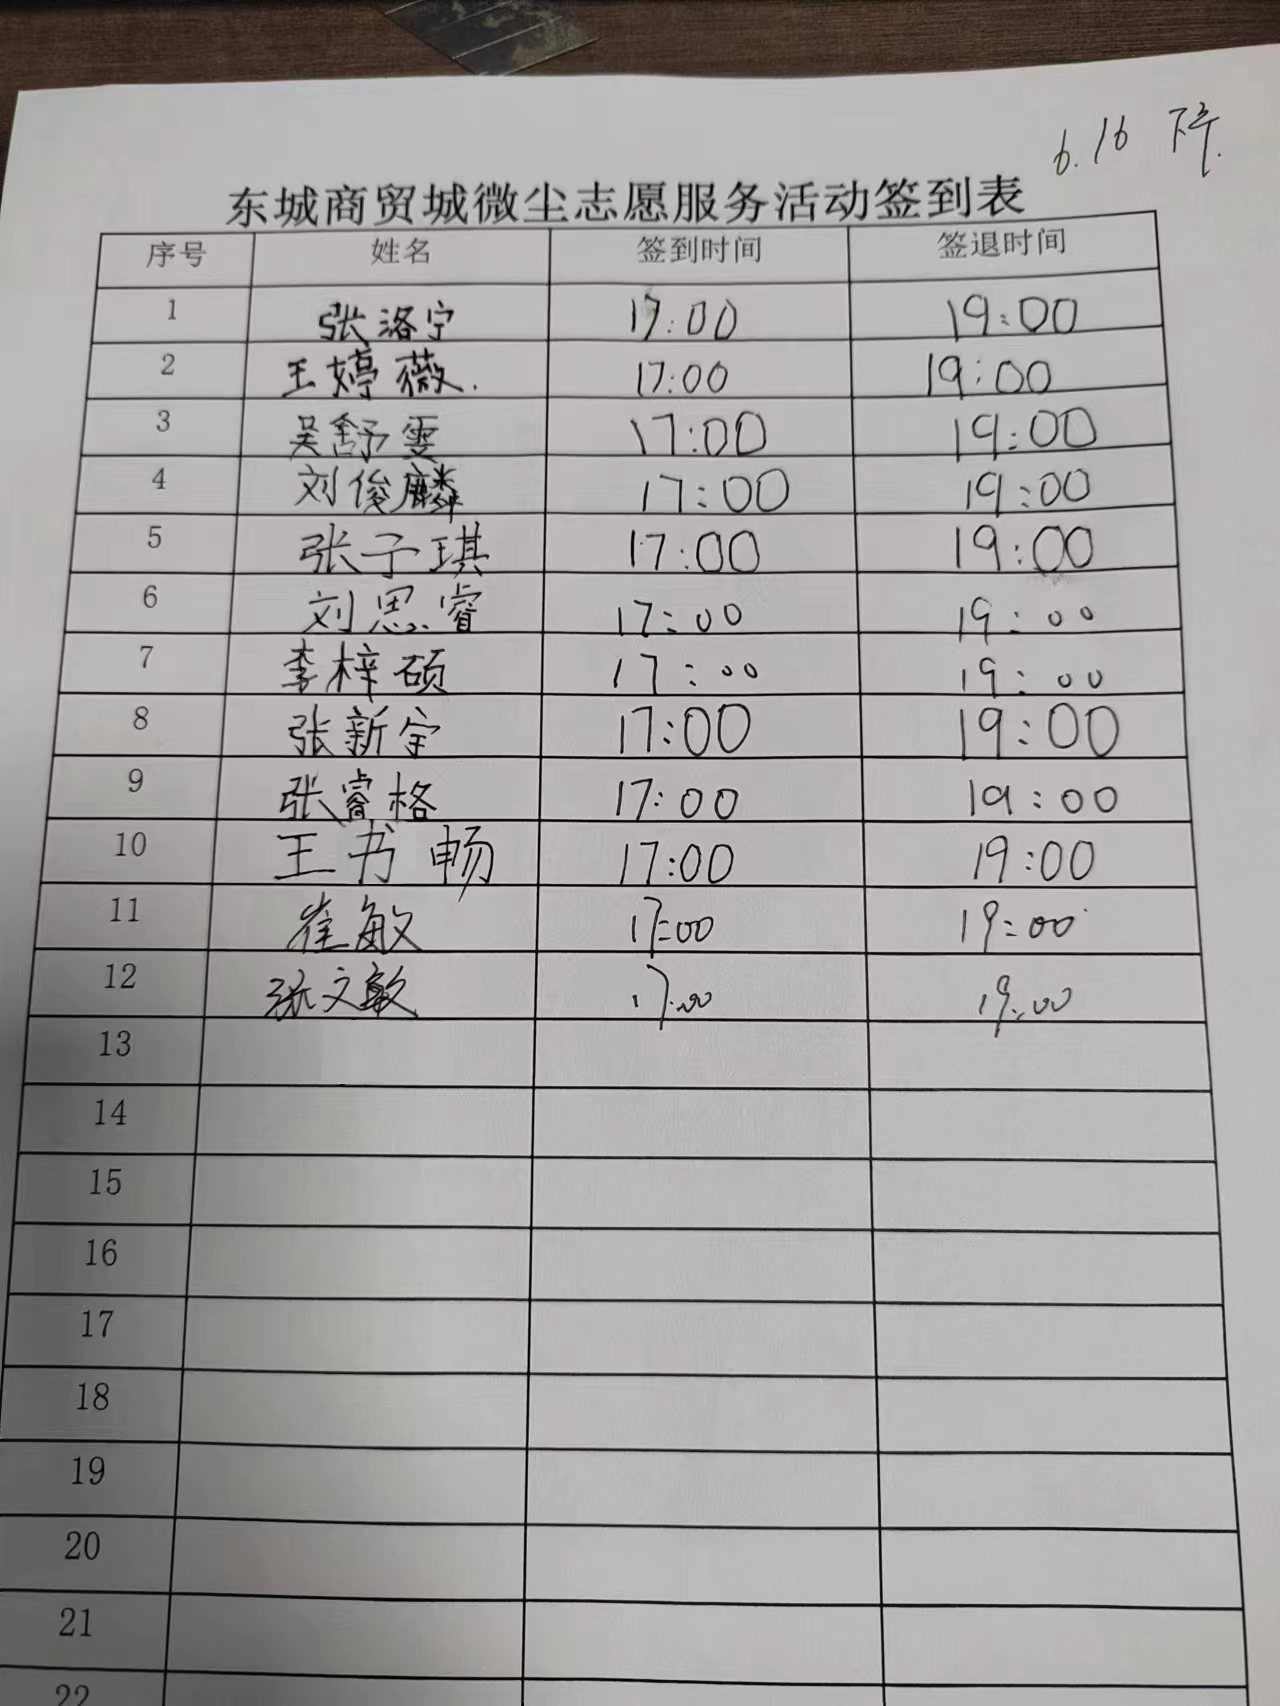 6.16 下午.
东城商贸城微尘志愿服务活动签到表
序号 姓名 签到时间 签退时间
1 张洛宁 17:00 19:00
2 王婷薇. 17:00 19:00
3 吴舒雯 17:00 19:00
4 刘俊麟 17:00 19:00
5 张子琪 17:00 19:00
6 刘思睿 17:00 19:00
7 李梓硕 17:00 19:00
8 张新宇 17:00 19:00
9 张睿格 17:00 19:00
10 王书畅 17:00 19:00
11 崔敏 17:00 19:00
12 张文敏 17:00 19:00
13
14
15
16
17
18
19
20
21
22